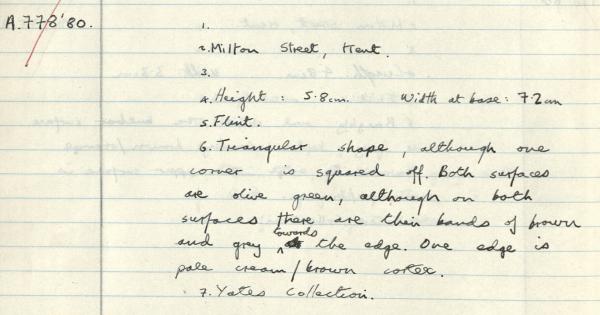 A.778'80.
1.
2. Milton Street, Kent.
3.
4. Height : 5.8cm. Width at base: 7.2cm
5. Flint.
6. Triangular shape, although one
corner is squared off. Both surfaces
are olive green, although on both
surfaces there are thin bands of brown
and grey towards the edge. One edge is
pale cream/brown cortex.
7. Yates Collection.